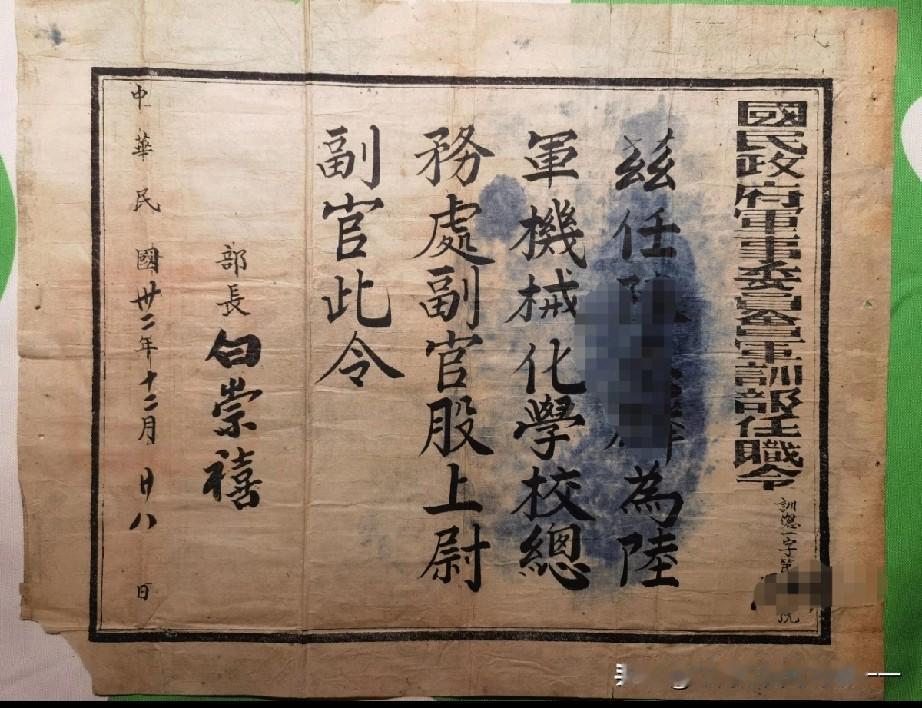 國民政府軍事委員會軍訓部任職令
訓 一字第 號
茲任陳 為陸
軍機械化學校總
務處副官股上尉
副官此令
部長白崇禧
中華民國卅二年十二月廿八日